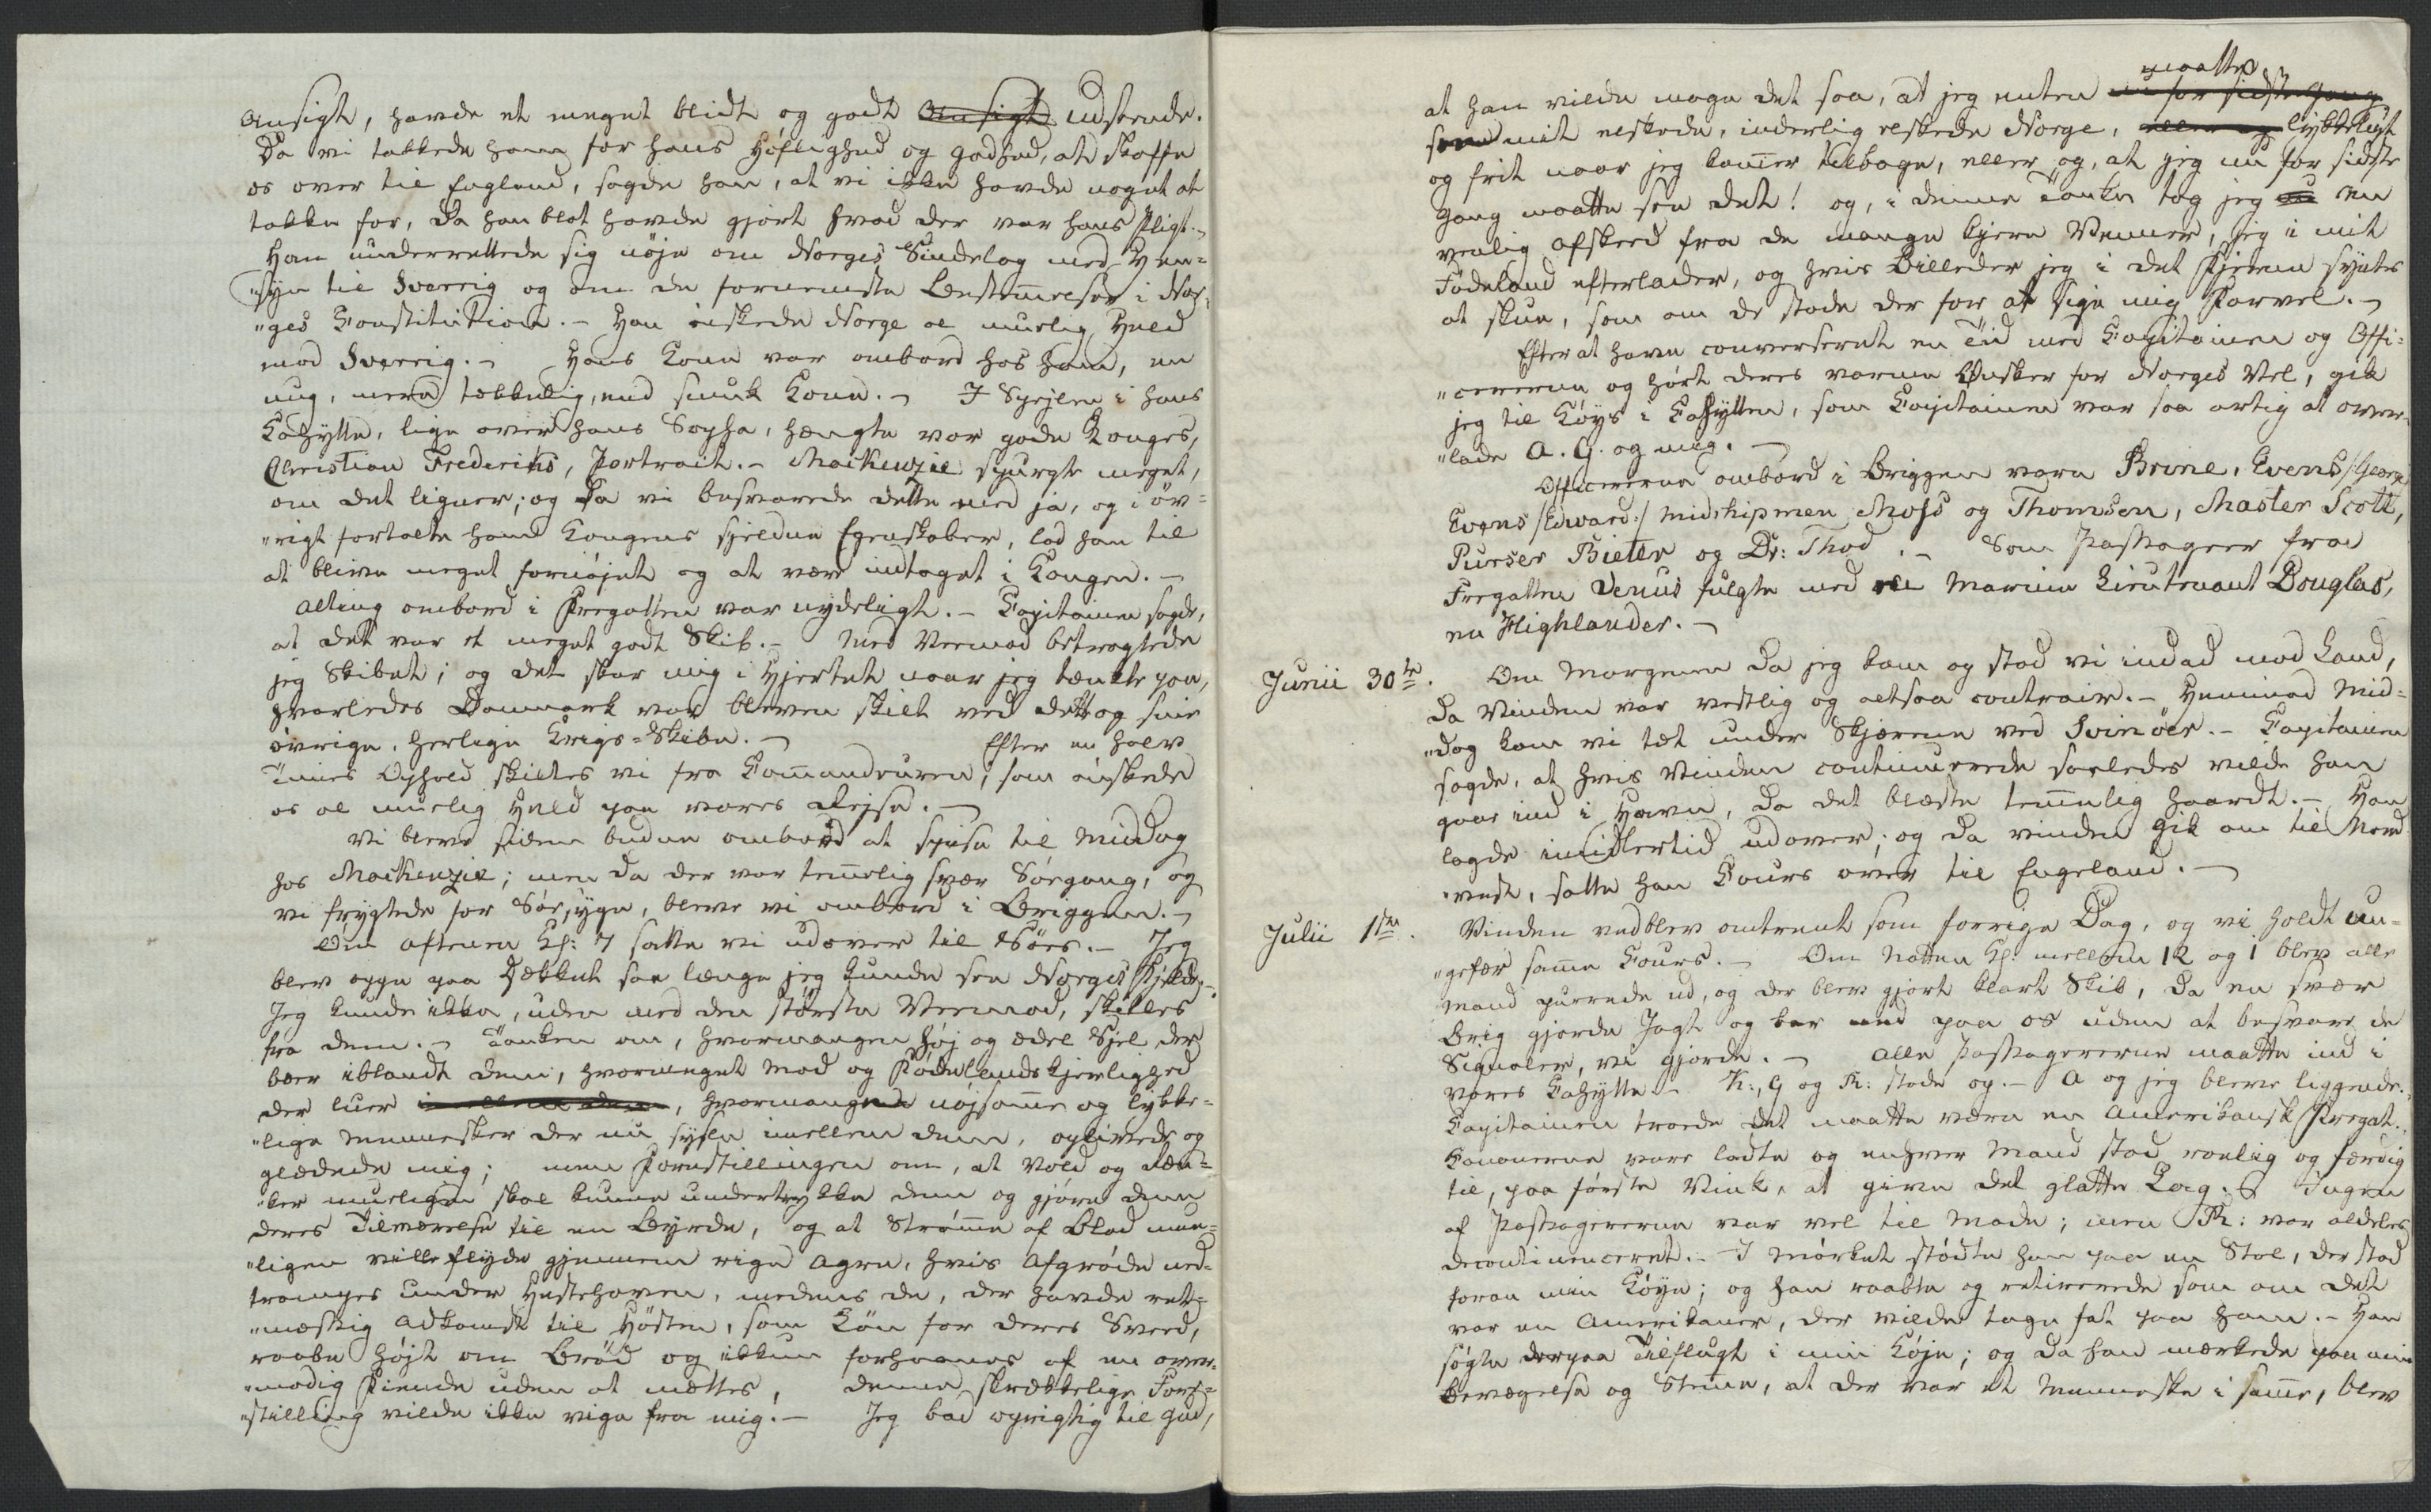 Ansigt, havde et meget blidt og godt Ansigt udseende.
Da vi takkede ham for hans Høflighed og Godhed, at skaffe
os over til England, sagde han, at vi ikke havde noget at
takke for, da han blot havde gjort hvad der var hans Pligt.-
Han underrettede sig nøje om Norges Sindelag med Hen=
"syn til Sverrig og om de fornemste Bestemmelser i Nor=
"ges Constitution.- Han ønskede Norge al muelig Held
mod Sverrig.- Hans Kone var ombord hos ham, en
ung, mere tækkelig, end smuk Kone.- I Speilen i hans
Cahytte, lige over hans Sopha, hængte vor gode Konges,
Christian Frederiks, Portrait.- Mackenzie spurgte meget,
om det ligner; og da vi besvarede dette med ja, og i øv=
"rigt fortalte ham Kongens sjeldne Egenskaber, lod han til
at blive meget fornøjet og at være indtaget i Kongen.-
Alting ombord i Fregatten var nydeligt.- Capitainen sagde,
at det var et meget godt Skib.- Med Veemod betragtede
jeg Skibet; og det skar mig i Hjertet naar jeg tænkte paa,
hvorledes Danmark var bleven skilt ved dette og sine
øvrige, herlige Krigs=Skibe.- Efter en halv
Times Ophold skiltes vi fra Commandeuren, som ønskede
os al muelig Held paa vores Rejse.-
Vi bleve siden budne ombord at spise til Middag
hos Mackenzie; men da der var temmelig svær Søegang, og
vi frygtede for Søesyge, bleve vi ombord i Briggen.-
Om aftenen Kl: 7 satte vi udover til Søes.- Jeg
blev oppe paa Dækket saa længe jeg kunde see Norges Fjelde.-
Jeg kunde ikke, uden med den største Veemod, skilles
fra dem.- Tanken om, hvormangen høj og ædel Sjel der
boer iblandt dem, hvormeget Mod og Fødelandskjerlighed
der luer imellem dem, hvormange nøjsomme og lykke=
"lige Mennesker der nu sysle imellem dem, oplivede og
glædede mig; men Forestillingen om, at Vold og Læn=
"ker mueligen skal kunne undertrykke dem og gjøre dem
deres Tilværelse til en Byrde, og at Strømme af Blod mue=
"ligen ville flyde gjennem rige Agre, hvis Afgrøde ned=
trampes under Hestehoven, medens de, der havde ret=
"mæssig Adkomst til Høsten, som Løn for deres Sveed,
raabe højt om Brød og ikkun forhaanes af en over=
"modig Fiende uden at mættes, denne skrækkelige Fore=
"stilling vilde ikke vige fra mig!- Jeg bad oprigtig til Gud,
maatte
at han vilde mage det saa, at jeg enten nu for sidste Gang
see mit elskede, inderlig elskede Norge, eller og lykkeligt
og frit naar jeg kommer tilbage, eller og, at jeg nu for sidste
Gang maatte see det! og, i denne Tanke tog jeg en
venlig Afskeed fra de mange kjere Venner, jeg i mit
Fødeland efterlader, og hvis Billeder jeg i det Fjerne syntes
at skue, som om de stode der for at sige mig Farvel.-
Efter at have converseret en Tid med Capitainen og Offi=
"cererne og hørt deres varme Ønsker for Norges Vel, gik
jeg til Køys i Cahytten, som Capitainen var saa artig at over=
"lade A. G. og mig.-
Officererne ombord i Briggen vare Brine, Evens /George/
Evens /Edward:/ midshipmen Moss og Thomsen, Master Scott,
Purser Bieter og Dr: Thod.- Som Passageer fra
Fregatten Venus fulgte med en Marine Lieutenant Douglas,
en Highlander.-
Junii 30te. Om Morgenen da jeg kom op stod vi indad mod Land,
da Vinden var vestlig og altsaa contrair.- Henimod Mid=
"dag kom vi tæt under Skjærene ved Svinöer.- Capitainen
sagde, at hvis Vinden continuerede saaledes vilde han
gaae ind i Havn, da det blæste temmelig haardt.- Han
lagde imidlertid udover; og da vinden gik om til Nord=
"vest, satte han Cours over til Engeland.-
Julii 1ste. Vinden vedblev omtrent som forrige Dag, og vi holdt un=
"gefær samme Cours.- Om Natten Kl. mellem 12 og 1 blev alle
Mand purrede ud, og der blev gjort klart Skib, da en svær
Brig gjorde Jagt og bar ned paa os uden at besvare de
Signaler, vi gjorde.- Alle Passagererne maatte ind i
vores Cahytte.- K:, G og Th: stode op.- A og jeg bleve liggende.
Capitainen troede det maatte være en Amerikansk Fregat.
Kanonerne vare ladte og enhver Mand stod roelig og færdig
til, paa første Vink, at give det glatte Lag.- Ingen
af Passagererne var vel til Mode; men Th: var aldeles
decontinenceret.- I Mørket stødte han paa en Stol, der stod
foran min Køye; og han raabte og retirerede som om det
var en Amerikaner, der vilde tage fat paa ham.- Han
søgte derpaa Tilflugt i min Køje; og da han mærkede paa min
Bevægelse og Stemme, at der var et Menneske i samme, blev